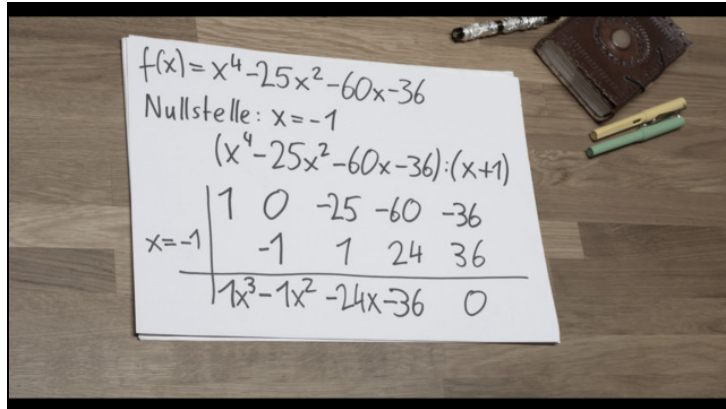 f(x)=x⁴-25x²-60x-36
Nullstelle: x=-1
(x⁴-25x²-60x-36):(x+1)
1 0 -25 -60 -36
x=-1 -1 1 24 36
1x³-1x²-24x-36 0